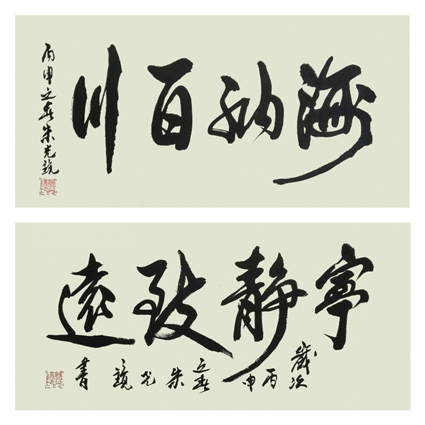 海纳百川
丙申之春朱光镜
寧静致遠
歲次丙申之春朱光镜書